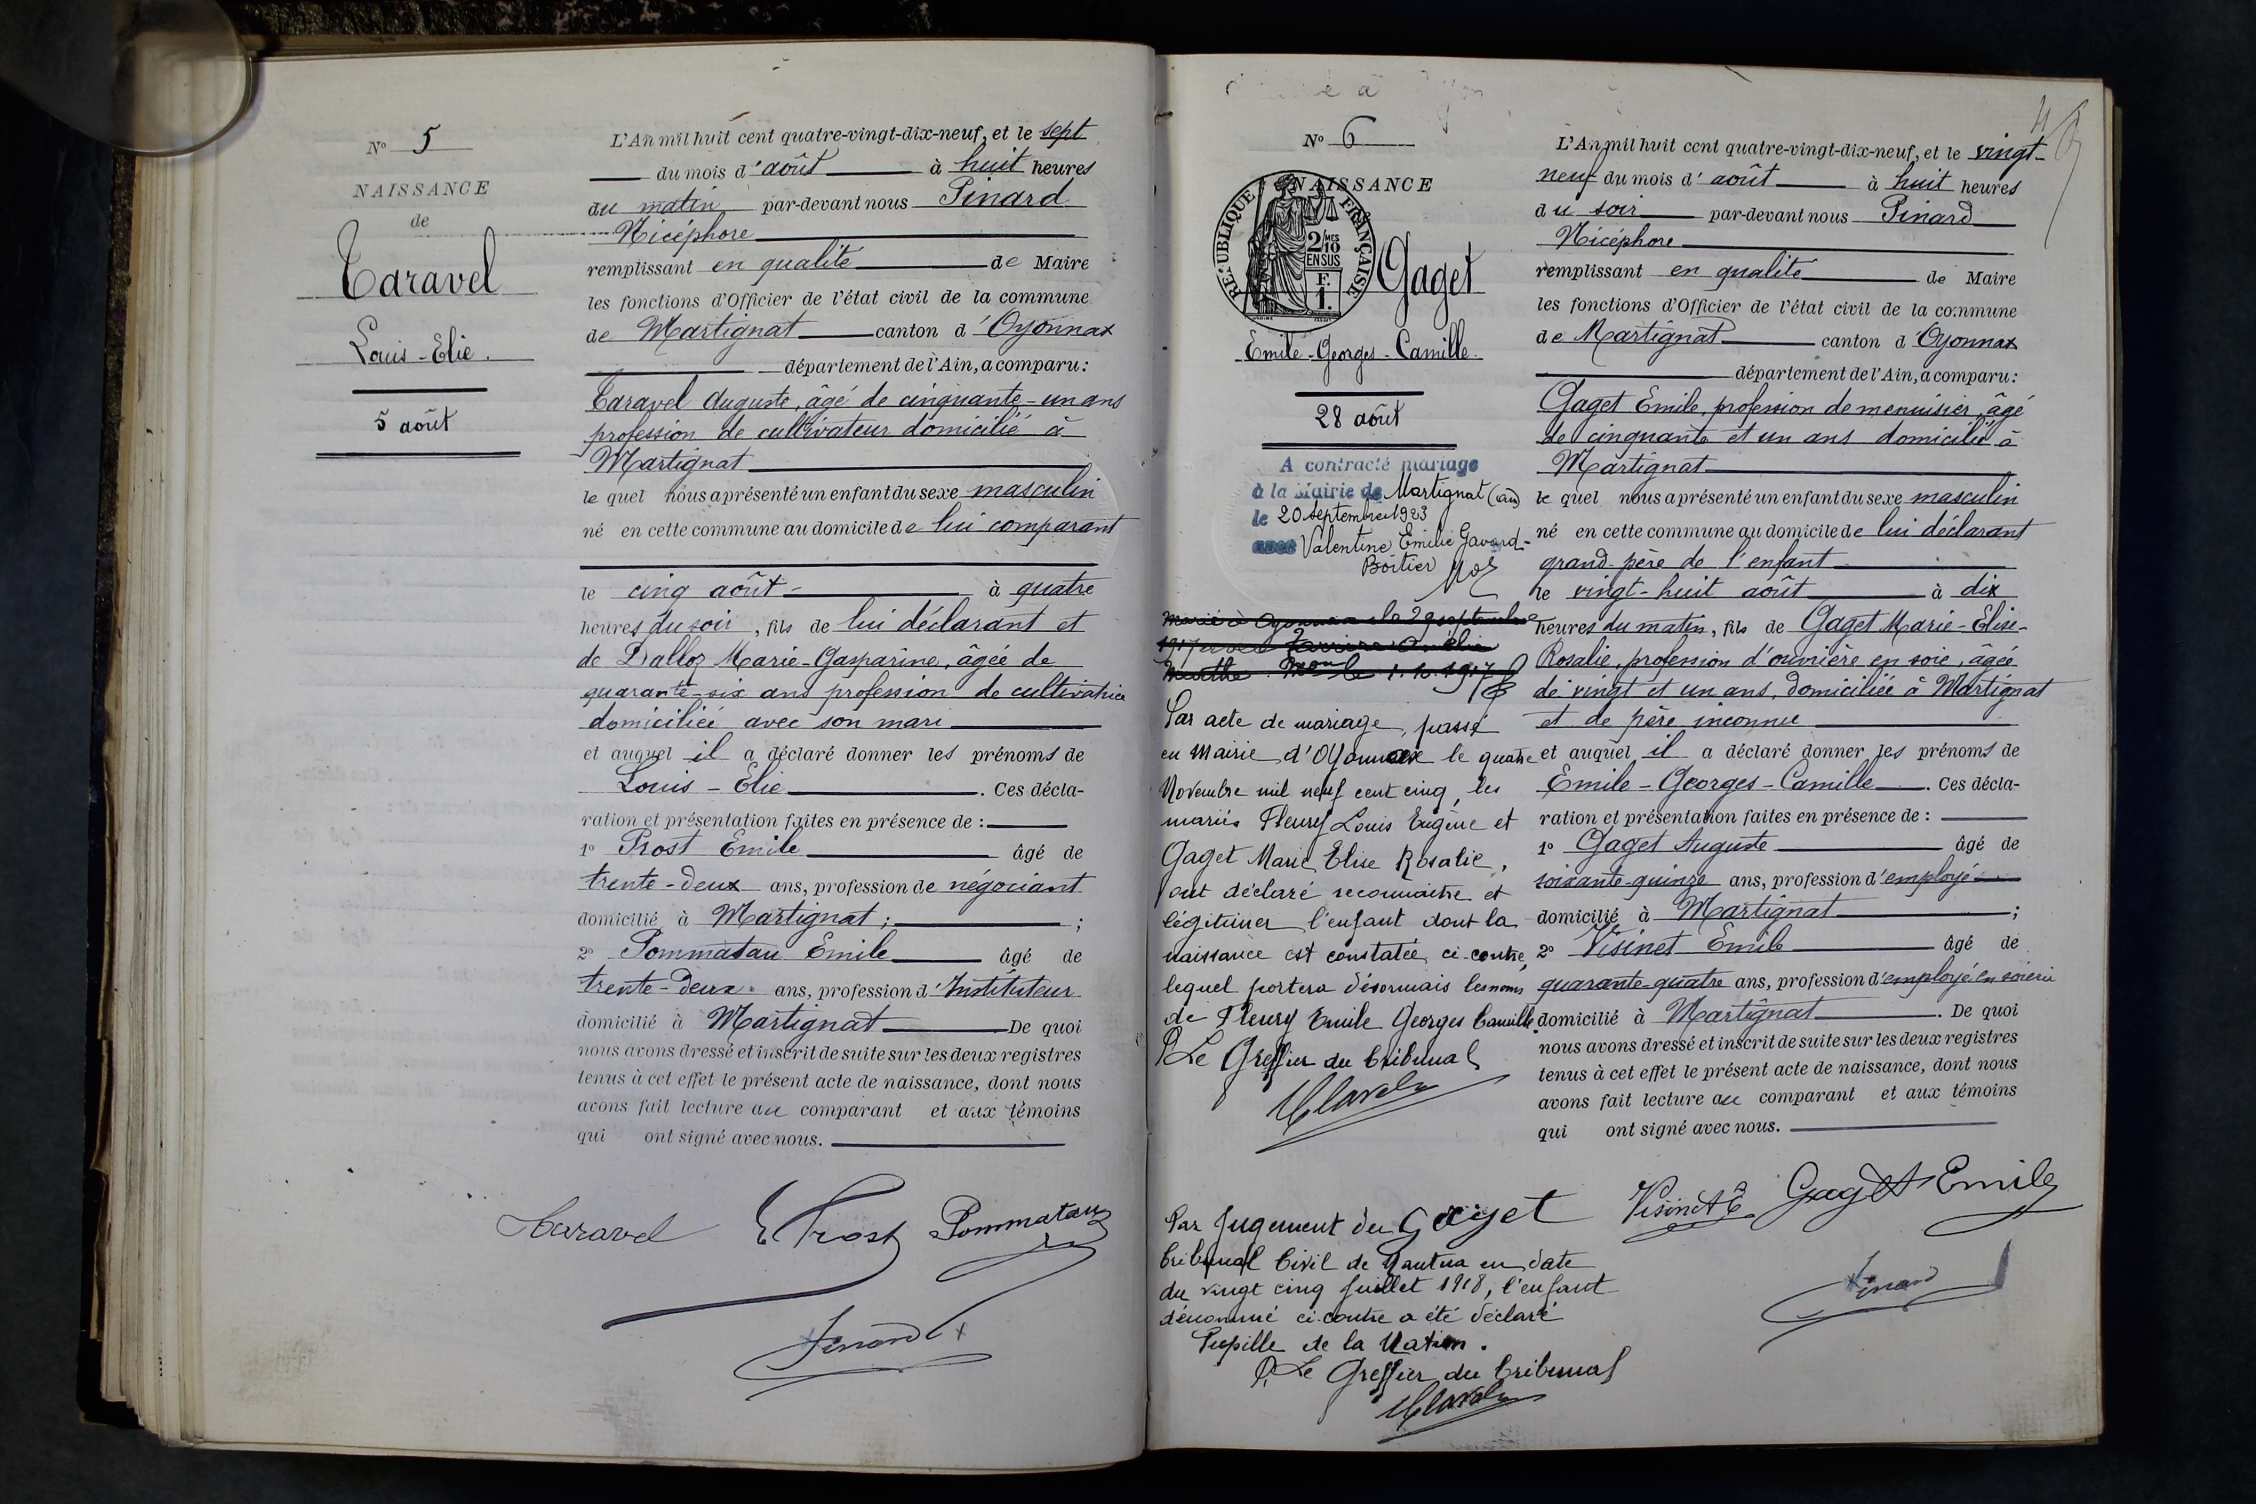 N° 5
NAISSANCE
de
Taravel
Louis-Elie.
5 août
L'An mil huit cent quatre-vingt-dix-neuf, et le sept
du mois d'août à huit heures
du matin par-devant nous Pinard
Nicéphore
remplissant en qualité de Maire
les fonctions d'Officier de l'état civil de la commune
de Martignat canton d'Oyonnax
département de l'Ain, a comparu:
Taravel Auguste, âgé de cinquante-un ans
profession de cultivateur domicilié à
Martignat
lequel nous a présenté un enfant du sexe masculin
né en cette commune au domicile de lui comparant
le cinq août à quatre
heures du soir, fils de lui déclarant et
de Dalloz Marie-Gasparine, âgée de
quarante-six ans profession de cultivatrice
domiciliée avec son mari
et auquel il a déclaré donner les prénoms de
Louis-Elie. Ces décla-
ration et présentation faites en présence de:
1° Prost Emile âgé de
trente-deux ans, profession de négociant
domicilié à Martignat; ;
2° Pommatau Emile âgé de
trente-deux ans, profession d'Instituteur
domicilié à Martignat De quoi
nous avons dressé et inscrit de suite sur les deux registres
tenus à cet effet le présent acte de naissance, dont nous
avons fait lecture au comparant et aux témoins
qui ont signé avec nous.
Taravel E Prost Pommatau
Pinard
N° 6
NAISSANCE
RÉPUBLIQUE FRANÇAISE
2/10 MES
EN SUS
F.
1.
Gaget
Emile-Georges-Camille.
28 août
A contracté mariage
à la Mairie de Martignat (ain)
le 20 septembre 1923
avec Valentine Emilie Gavard-
Boitier
Marié à Oyonnax le 29 septembre
1917 avec
Marthe. le 1.12.1917
Par acte de mariage, passé
en Mairie d'Oyonnax le quatre
Novembre mil neuf cent cinq, les
mariés Fleury Louis Eugène et
Gaget Marie Elise Rosalie,
ont déclaré reconnaitre et
légitimer l'enfant dont la
naissance est constatée ci-contre,
lequel portera désormais les noms
de Fleury Emile Georges Camille.
P Le Greffier du Tribunal
Par Jugement du
Tribunal Civil de Nantua en date
du vingt cinq Juillet 1918, l'enfant
dénommé ci-contre a été déclaré
Pupille de la Nation.
P. Le Greffier du Tribunal
4
L'An mil huit cent quatre-vingt-dix-neuf, et le vingt-
neuf du mois d'août à huit heures
du soir par-devant nous Pinard
Nicéphore
remplissant en qualité de Maire
les fonctions d'Officier de l'état civil de la commune
de Martignat canton d'Oyonnax
département de l'Ain, a comparu:
Gaget Emile, profession de menuisier, âgé
de cinquante et un ans domicilié à
Martignat
lequel nous a présenté un enfant du sexe masculin
né en cette commune au domicile de lui déclarant
grand-père de l'enfant
le vingt-huit août à dix
heures du matin, fils de Gaget Marie-Elise-
Rosalie, profession d'ouvrière en soie, âgée
de vingt et un ans, domiciliée à Martignat
et de père inconnu
et auquel il a déclaré donner les prénoms de
Emile-Georges-Camille. Ces décla-
ration et présentation faites en présence de:
1° Gaget Auguste âgé de
soixante-quinze ans, profession d'employé
domicilié à Martignat ;
2° Visinet Emile âgé de
quarante-quatre ans, profession d'employé en soierie
domicilié à Martignat. De quoi
nous avons dressé et inscrit de suite sur les deux registres
tenus à cet effet le présent acte de naissance, dont nous
avons fait lecture au comparant et aux témoins
qui ont signé avec nous.
Gaget Visinet E Gaget Emile
Pinard